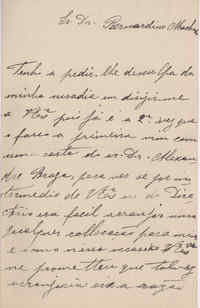 Sr. Dr. Bernardino Machado
Tenho a pedir-lhe desculpa da
minha ousadia em dirigir-me
a V. Exª pois já é a 2ª vez que
o faço a primeira vim com
uma carta do sr. Dr. Alexan
dre Braga, para ver se por in
termedio de V. Exª ou do Dire
ctorio era facil arranjar uma
qualquer collocação para mim
e uma nessa occasião V. Exª
me prometteu que talvez
arranjaria essa